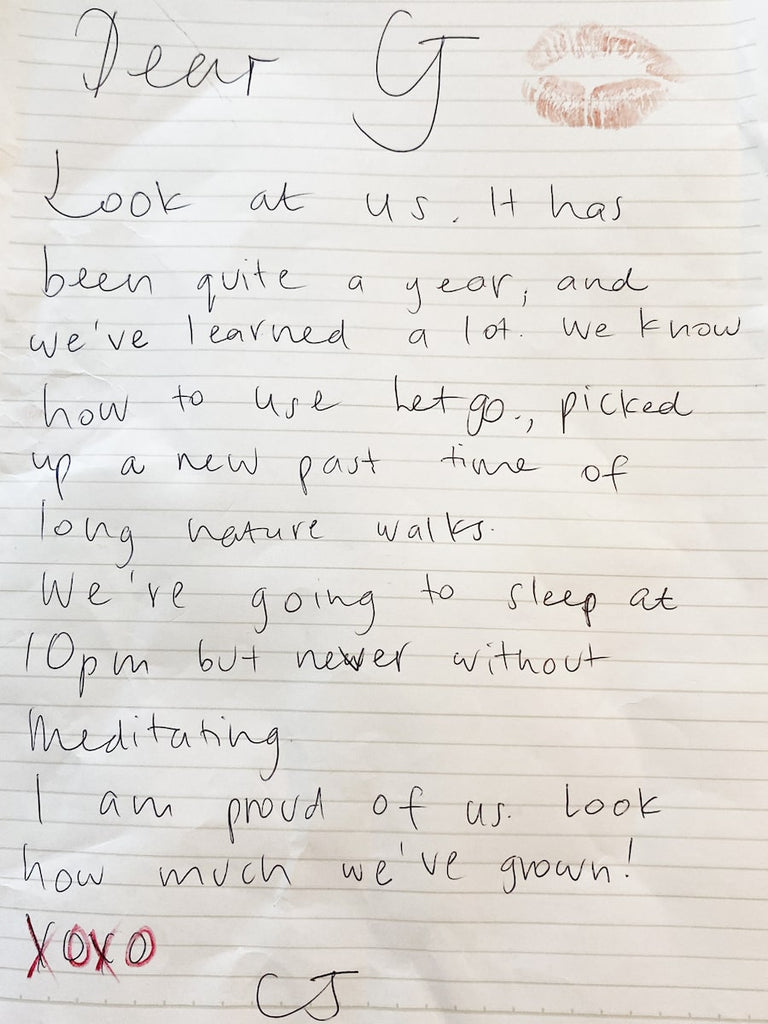 Dear G
Look at us. It has
been quite a year, and
we've learned a lot. We know
how to use Letgo., picked
up a new past time of
long nature walks.
We're going to sleep at
10pm but never without
meditating.
I am proud of us. Look
how much we've grown!
XOXO
CJ